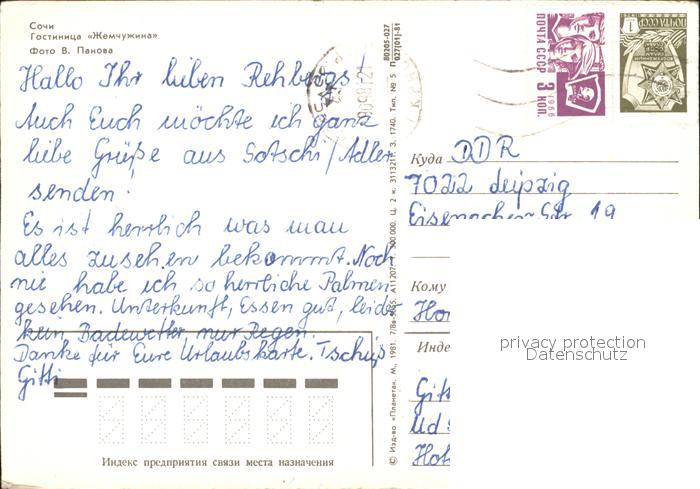 Сочи
Гостиница «Жемчужина»
Фото В. Панова
Hallo Ihr lieben Rehbergs!
Auch Euch möchte ich ganz
liebe Grüße aus Sotschi/Adler
senden.
Es ist herrlich was man
alles zusehen bekommt. Noch
nie habe ich so herrliche Palmen
gesehen. Unterkunft, Essen gut, leider
kein Badewetter nur Regen.
Danke für Eure Urlaubskarte. Tschüß
Gitti
Индекс предприятия связи места назначения
80205-027
027(01)-81
© Изд-во «Планета». М., 1981.
Тип. № 5
З. 1740.
ПОЧТА СССР
1966
3 КОП.
ПОЧТА СССР
1
Куда DDR
7022 Leipzig
Eisenacher Str 19
Кому
Инде
privacy protection
Datenschutz
Gitt
Hoh